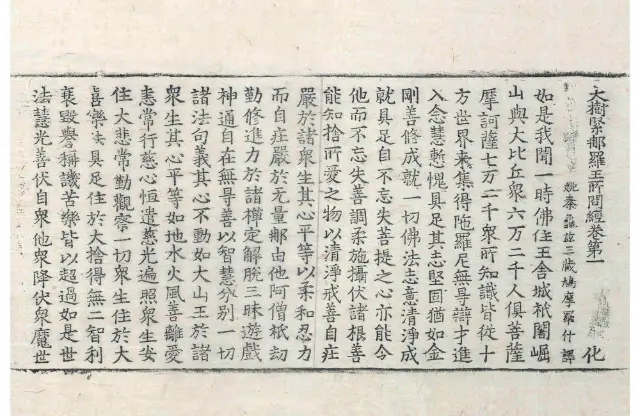 大樹緊那羅王所問經卷第一
化
姚秦龜茲三藏鳩摩羅什譯
如是我聞一時佛住王舍城祇闍崛
山與大比丘衆六万二千人俱菩薩
摩訶薩七万二千衆所知識皆從十
方世界來集得陁羅尼無㝵辯才進
入念慧慙愧具足其志堅固猶如金
剛善修成就一切佛法志意清淨成
就具足自不忘失菩提之心亦能令
他而不忘失善調柔施攝伏諸根善
能知捨所愛之物以清淨戒善自莊
嚴於諸衆生其心平等以柔和忍力
而自莊嚴於无量那由他阿僧祇劫
勤修進力於諸禪定解脫三昧遊戲
神通自在無㝵善以智慧分別一切
諸法句義其心不動如大山王於諸
衆生其心平等如地水火風善離愛
恚常行慈心恒遣慈光遍照衆生安
住大悲常勤觀察一切衆生住於大
喜樂法具足住於大捨得無二智利
衰毀譽稱譏苦樂皆以超過如是世
法慧光善伏自衆他衆降伏衆魔世